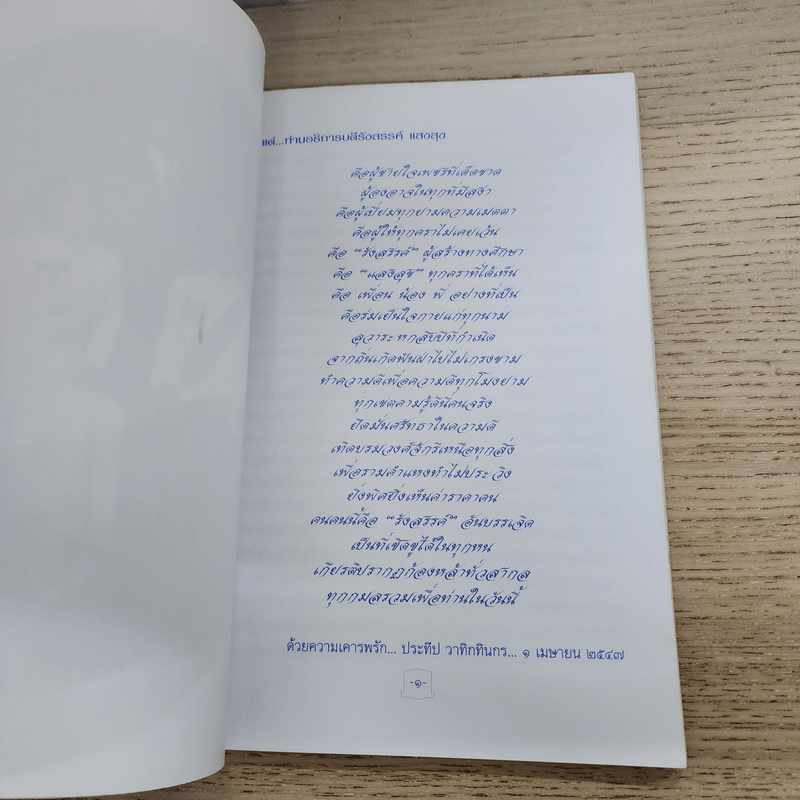 แด่...ท่านอธิการบดีรังสรรค์ แสงสุข
คือผู้ชายใจเพชรที่เด็ดขาด
ผู้องอาจในทุกที่มีสง่า
คือผู้เปี่ยมทุกยามความเมตตา
คือผู้ให้ทุกคราไม่เคยเว้น
คือ “รังสรรค์” ผู้สร้างทางศึกษา
คือ “แสงสุข” ทุกคราที่ได้เห็น
คือ เพื่อน น้อง พี่ อย่างที่เป็น
คือร่มเย็นใจกายแก่ทุกนาม
ลุวาระหกสิบปีที่กำเนิด
จากถิ่นเกิดฟันฝ่าไปไม่เกรงขาม
ทำความดีเพื่อความดีทุกโมงยาม
ทุกเขตคามรู้ดีนี่คนจริง
ยึดมั่นศรัทธาในความดี
เทิดบรมวงศ์จักรีเหนือทุกสิ่ง
เพื่อรามคำแหงทำไม่ประวิง
ยิ่งพิศยิ่งเห็นค่าราคาคน
คนคนนี้คือ “รังสรรค์” อันบรรเจิด
เป็นที่เชิดชูได้ในทุกหน
เกียรติปรากฏก้องหล้าทั่วสากล
ทุกกมลรวมเพื่อท่านในวันนี้
ด้วยความเคารพรัก... ประทีป วาทิกทินกร... ๑ เมษายน ๒๕๔๗
-๑-